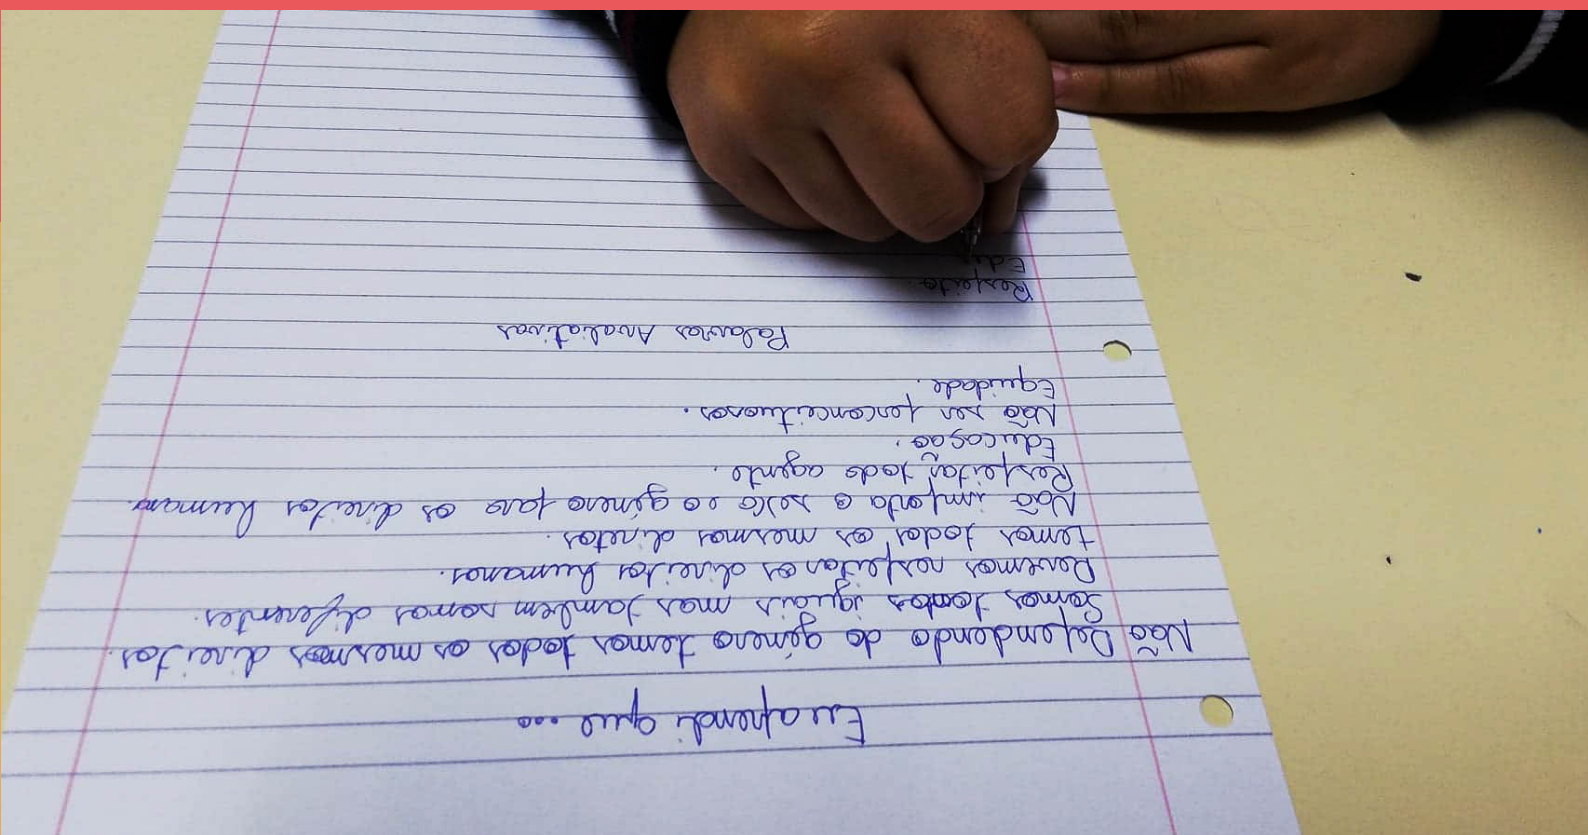 Eu aprendi que...
Não Dependendo do género temos todos os mesmos direitos.
Somos todos iguais mas tambem somos diferentes.
Devemos respeitar os direitos humanos.
temos todos os mesmos diretos.
Não importa o sexo e o género para os direitos humano
Respeitar todo agente.
Educação.
Não ser perconceituosos.
Equidade.
Palavras Avaliativas
Respeito
Edu